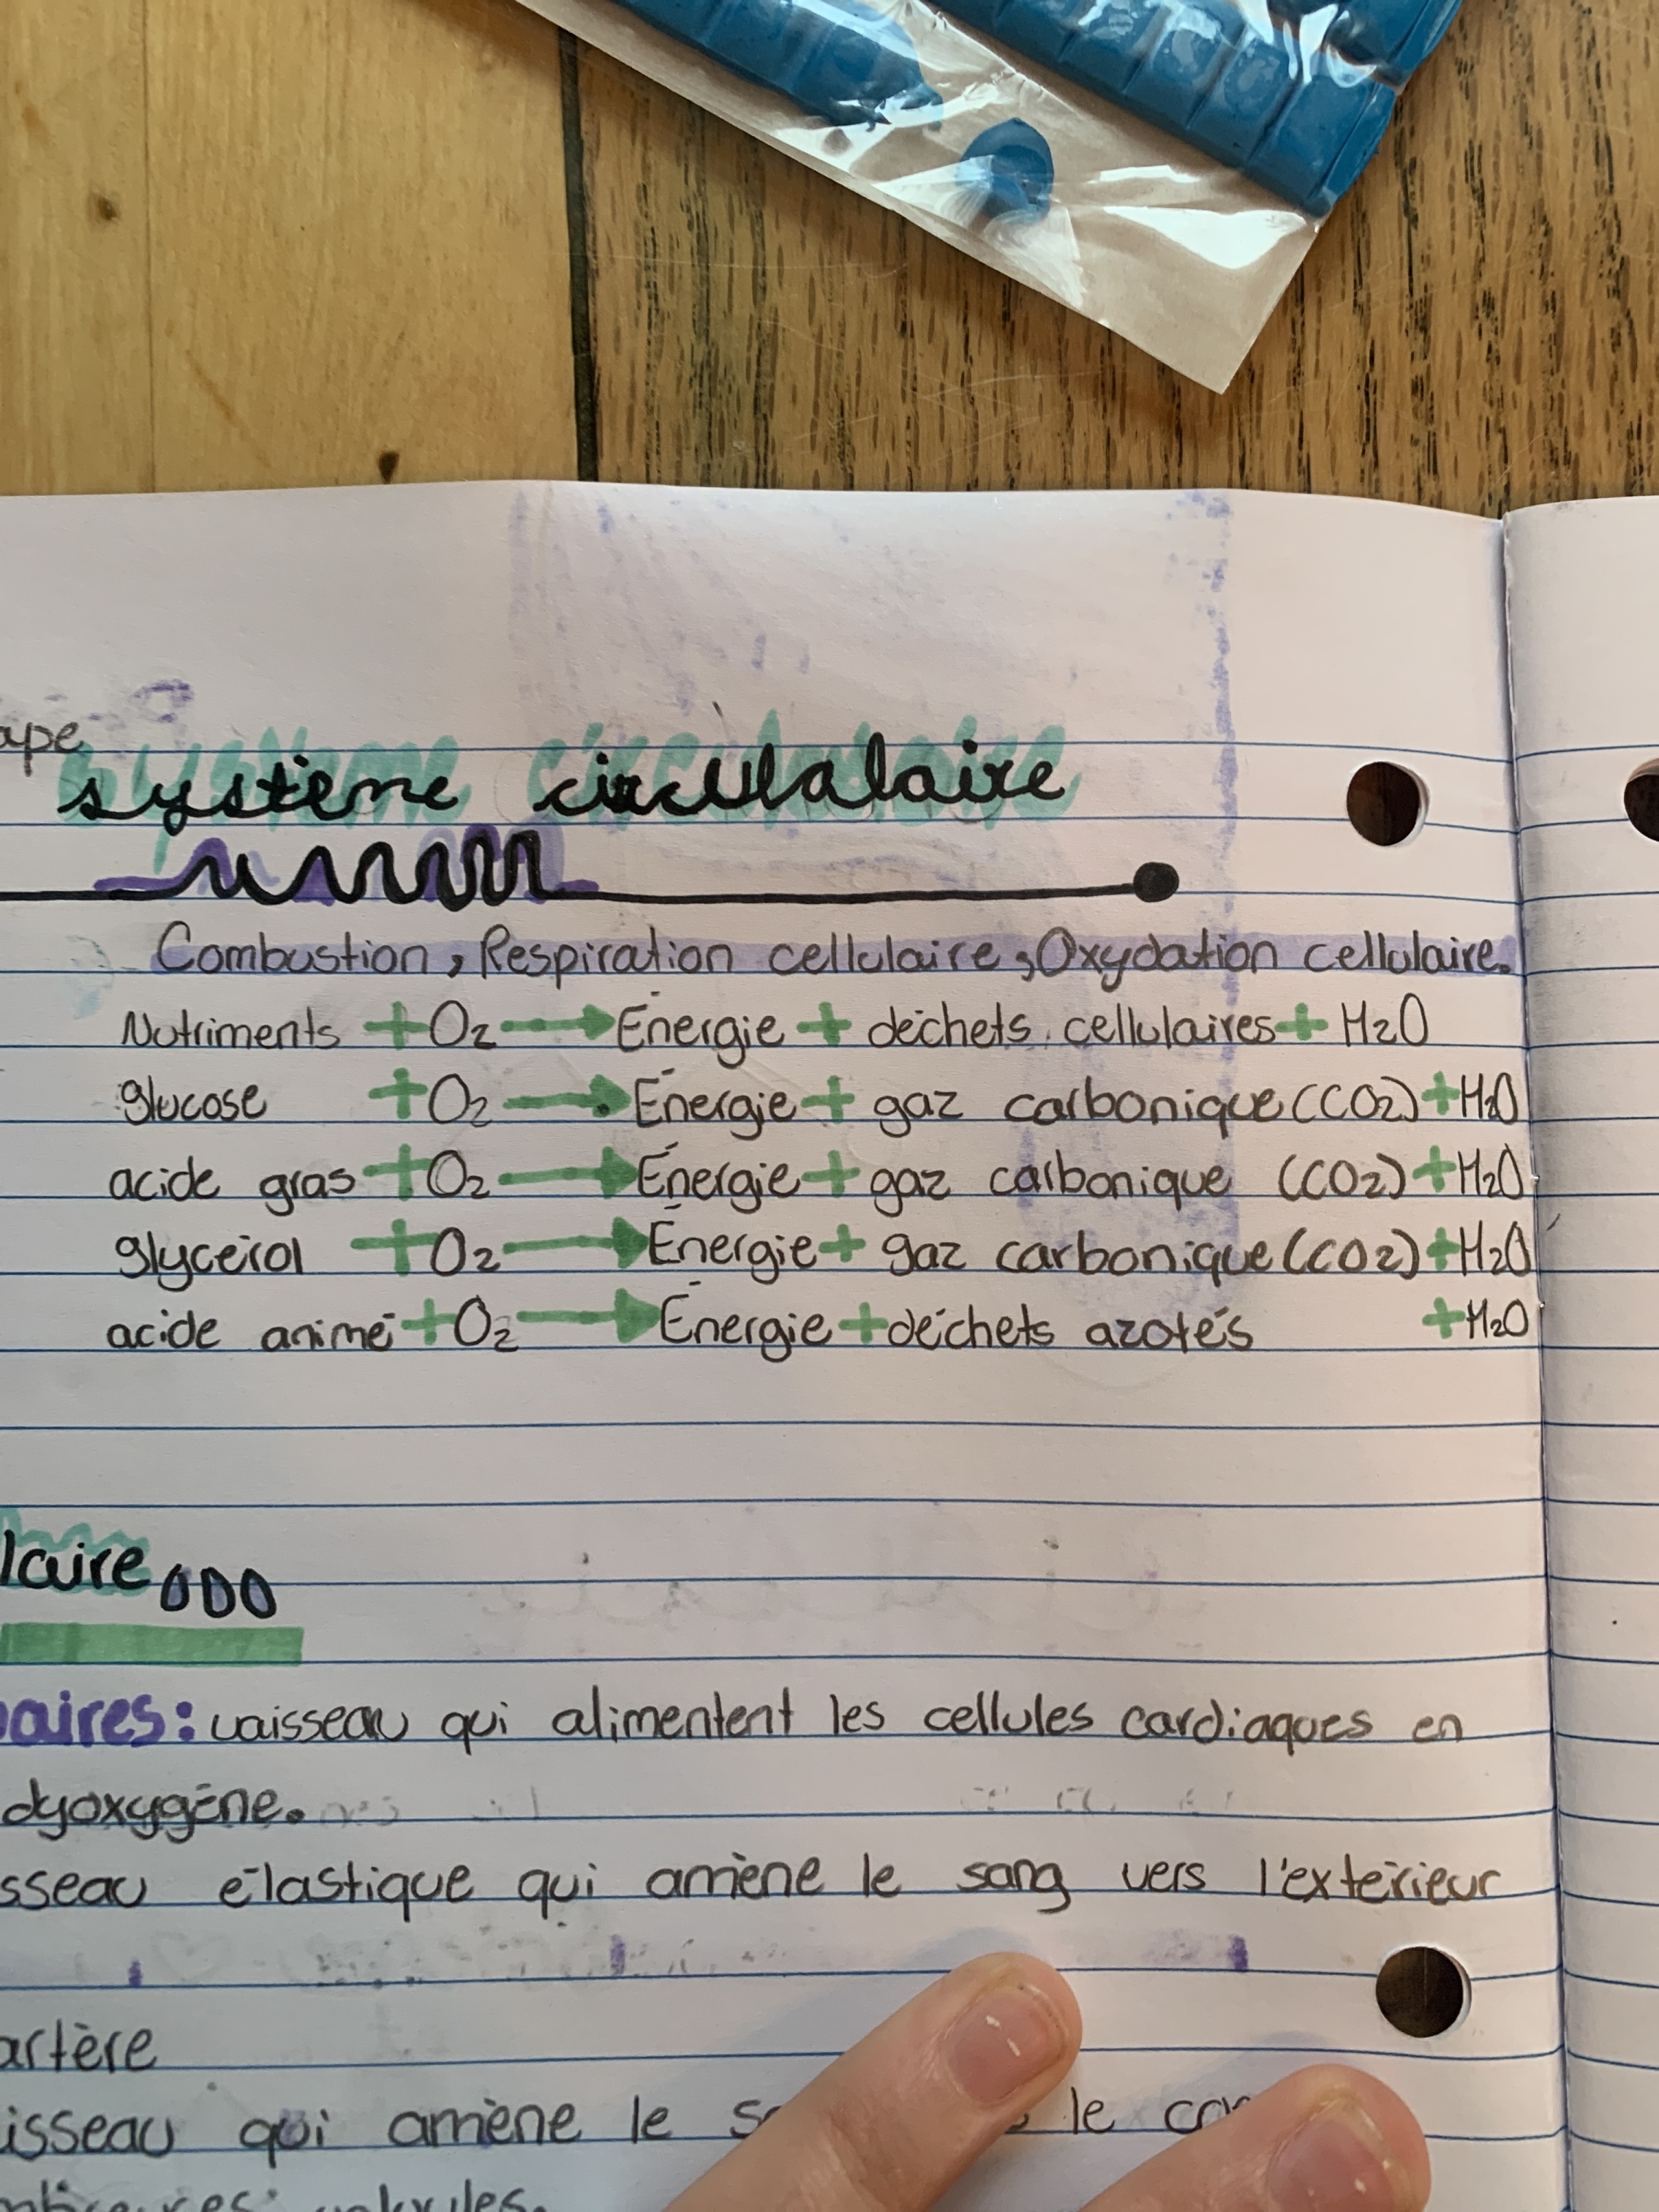 ape
système circulalaire
Combustion, Respiration cellulaire, Oxydation cellulaire.
Nutriments + O2 → Énergie + déchets cellulaires + H2O
glucose + O2 → Énergie + gaz carbonique (CO2) + H2O
acide gras + O2 → Énergie + gaz carbonique (CO2) + H2O
glycérol + O2 → Énergie + gaz carbonique (CO2) + H2O
acide animé + O2 → Énergie + déchets azotés + H2O
laire
aires: vaisseau qui alimentent les cellules cardiaques en
dyoxygène.
sseau élastique qui amène le sang vers l'extérieur
artère
isseau qui amène le le